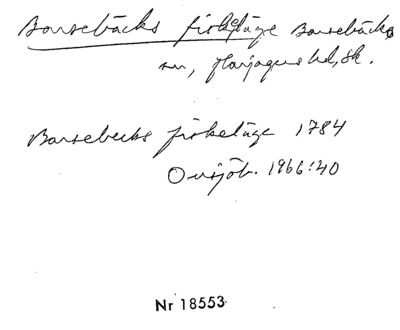 Barsebäcks fiskeläge Barsebäcks
sn, Harjagers hd, Sk.
Barsebecks fiskeläge 1784
Onsjöb. 1966:40
Nr 18553